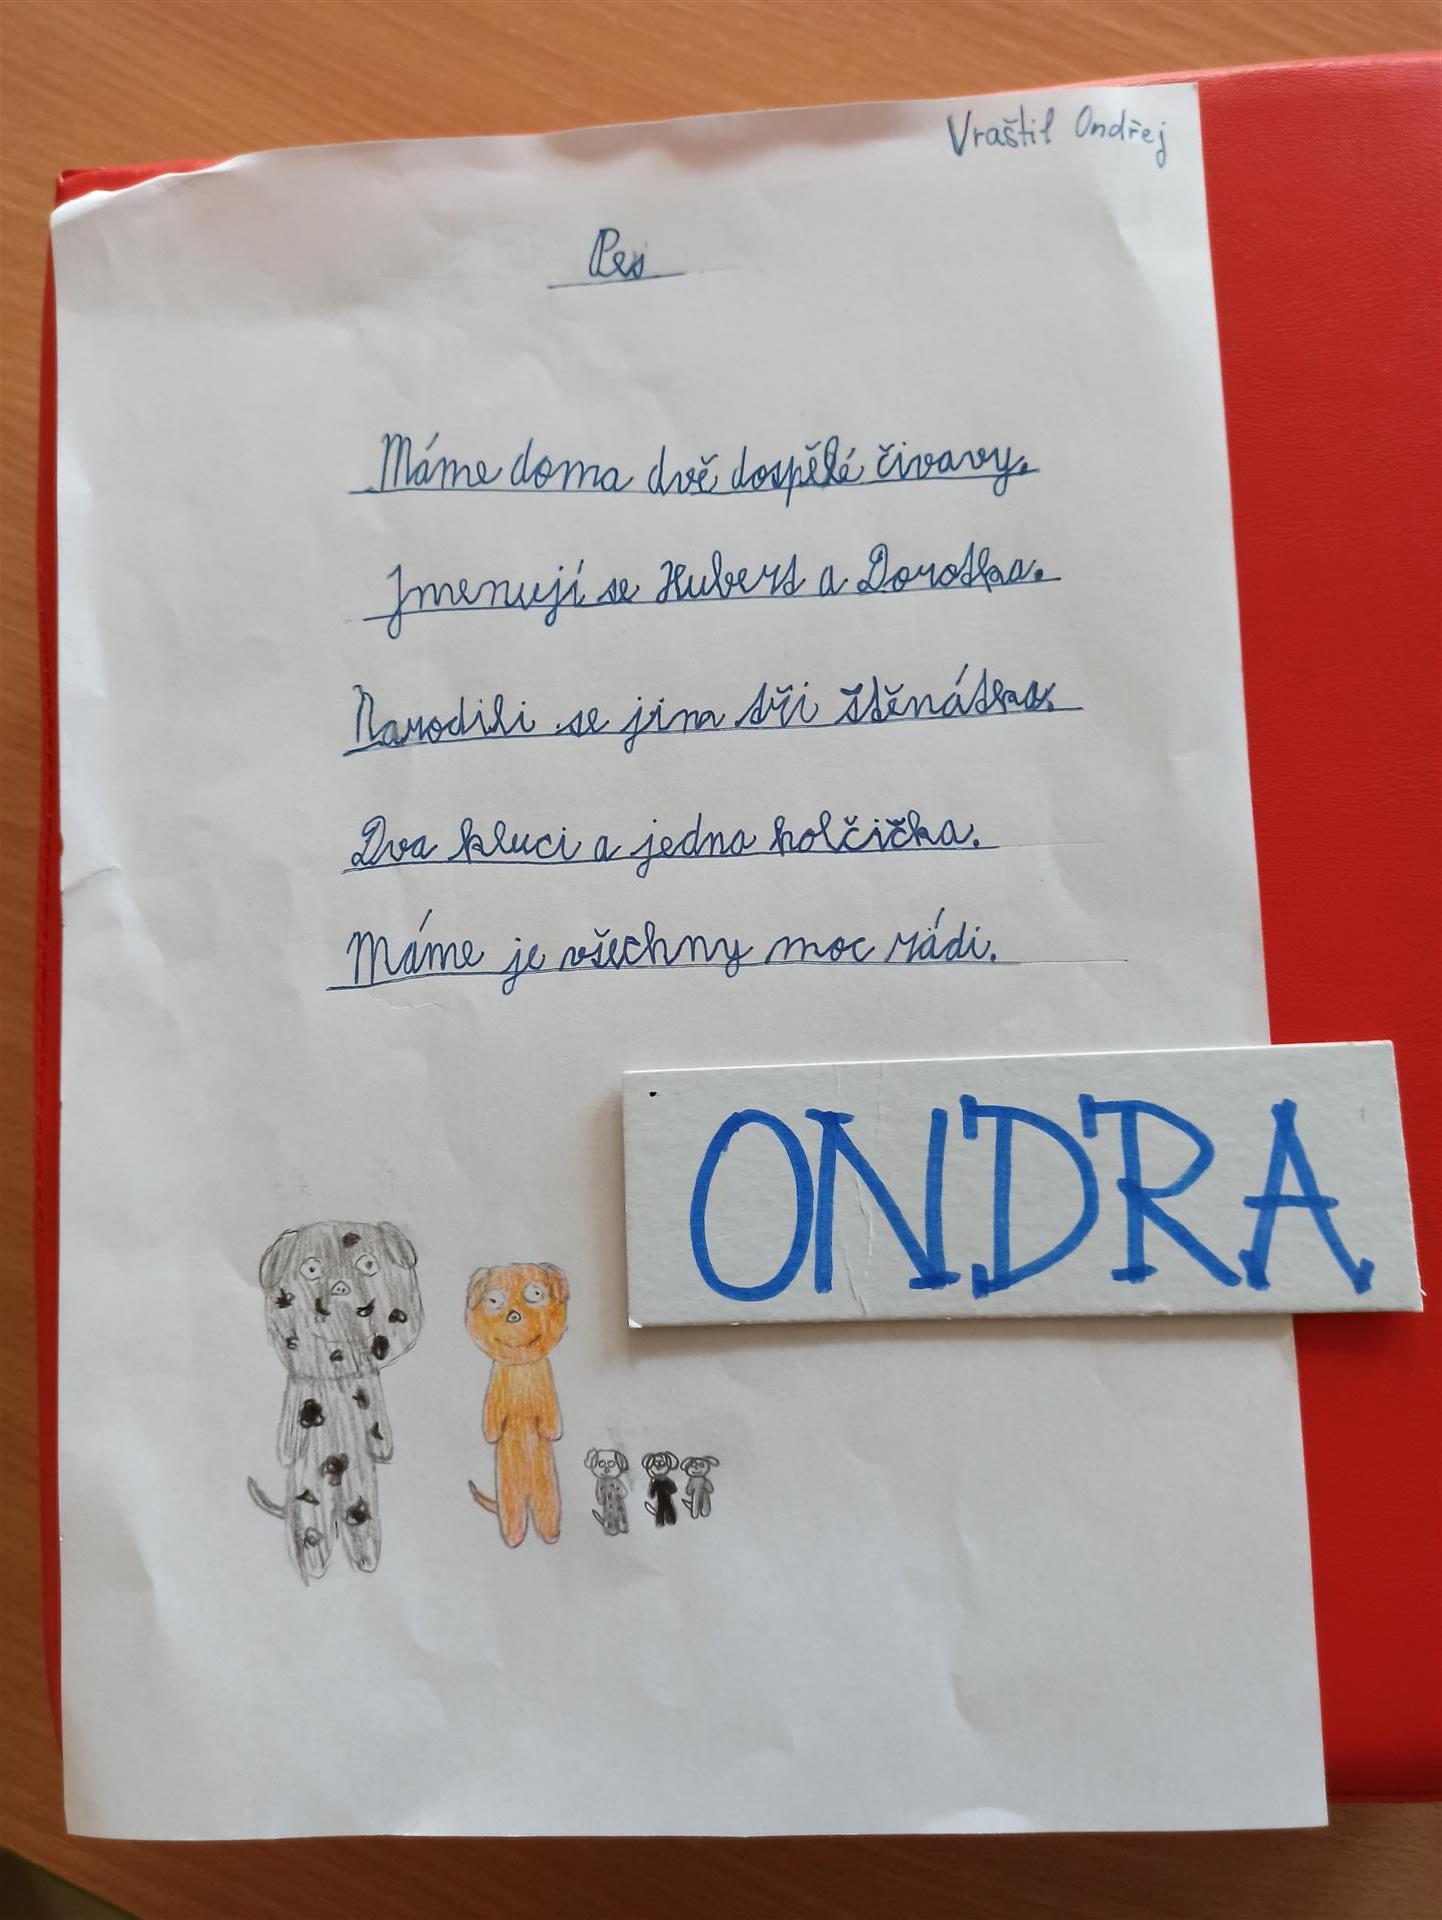 Vraštil Ondřej
Pes
Máme doma dvě dospělé čivavy.
Jmenují se Hubert a Dorotka.
Narodili se jim tři štěnátka.
Dva kluci a jedna holčička.
Máme je všechny moc rádi.
ONDRA